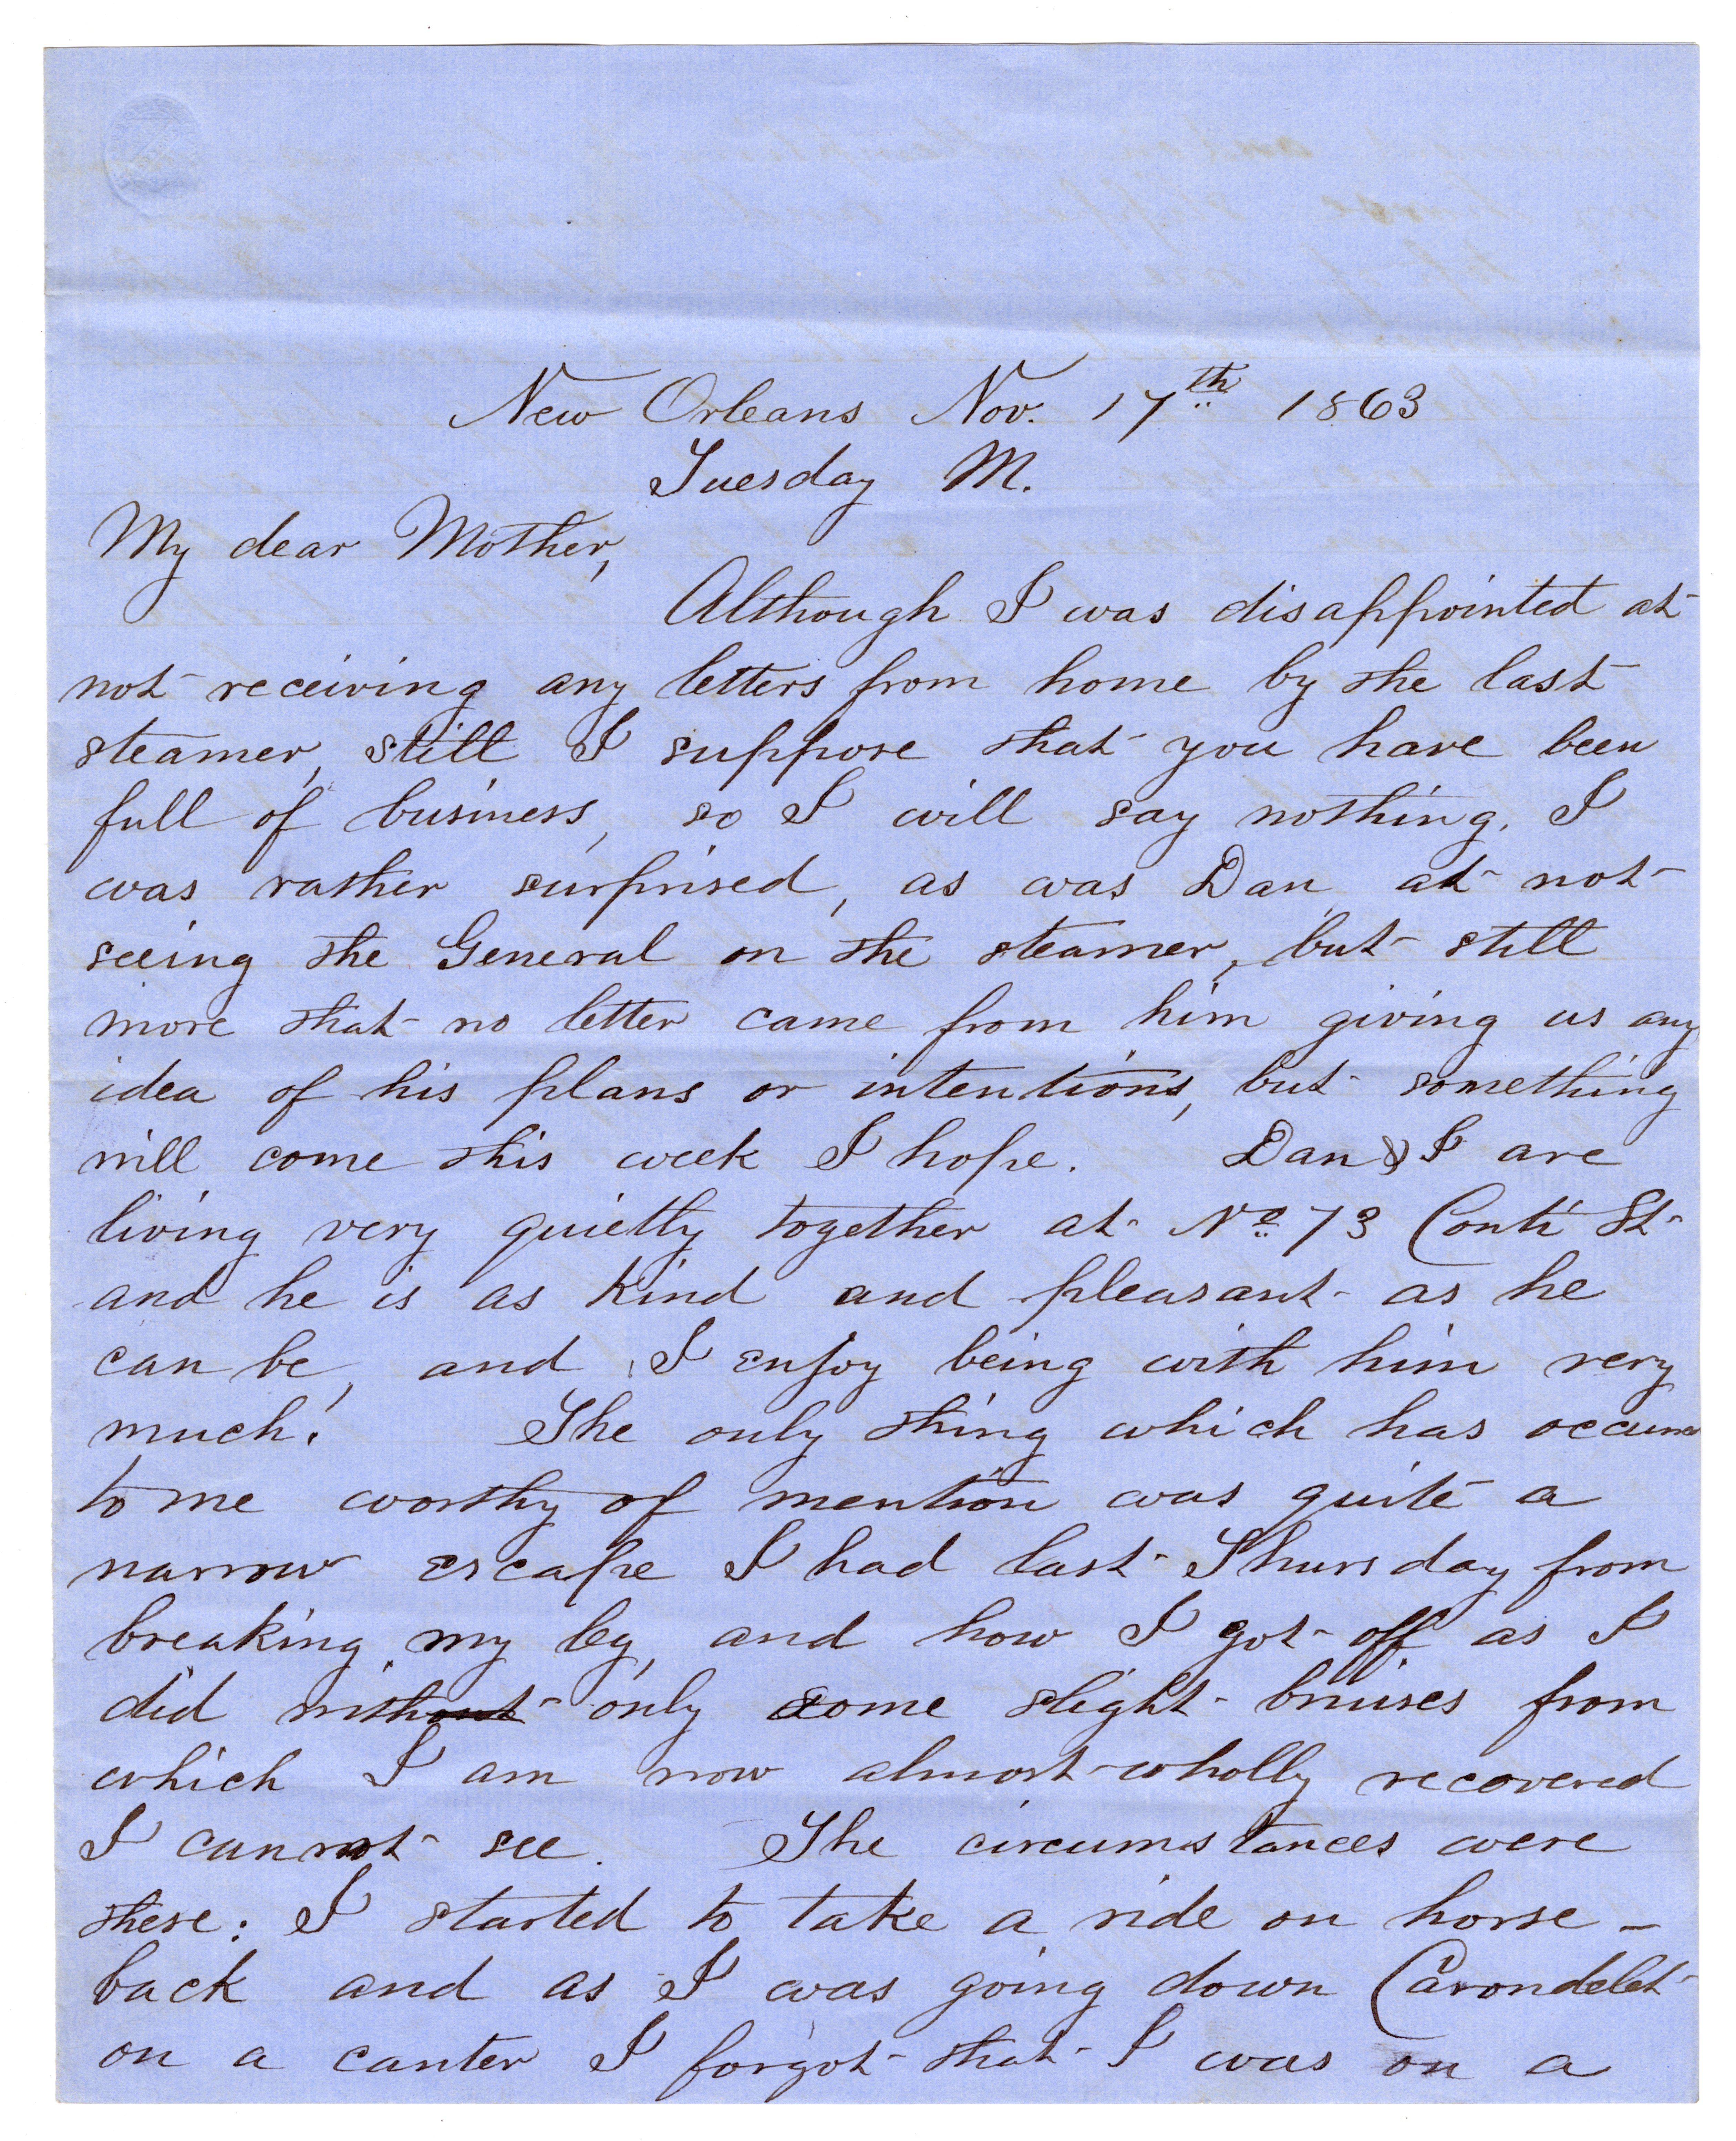 New Orleans Nov. 17th 1863
Tuesday M.
My dear Mother,
Although I was disappointed at
not receiving any letters from home by the last
steamer, still I suppose that you have been
full of business, so I will say nothing. I
was rather surprised, as was Dan, at not
seeing the General on the steamer, but still
more that no letter came from him giving us any
idea of his plans or intentions, but something
will come this week I hope. Dan & I are
living very quietly together at No. 73 Conti St
and he is as kind and pleasant as he
can be, and I enjoy being with him very
much. The only thing which has occurred
to me worthy of mention was quite a
narrow escape I had last Thursday from
breaking my leg, and how I got off as I
did without only some slight bruises from
which I am now almost wholly recovered
I cannot see. The circumstances were
these: I started to take a ride on horse-
back and as I was going down Carondelet
on a canter I forgot that I was on a